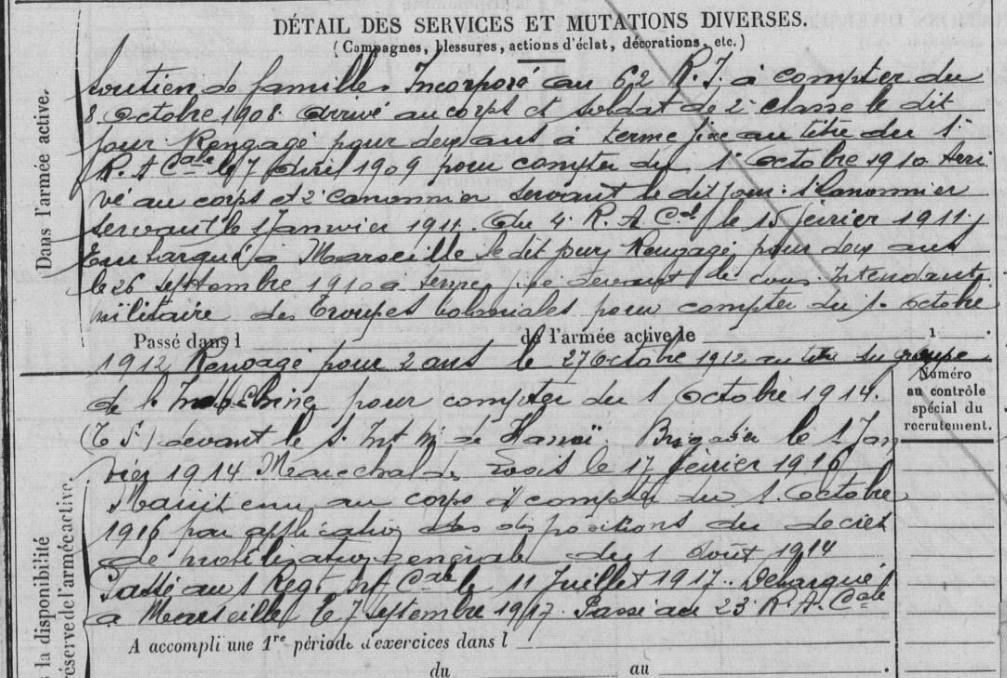 DÉTAIL DES SERVICES ET MUTATIONS DIVERSES.
(Campagnes, blessures, actions d'éclat, décorations, etc.)
Dans l'armée active.
Soutien de famille. Incorporé au 62 R.I. à compter du
8 Octobre 1908. Arrivé au corps et soldat de 2e classe le dit
jour Rengagé pour deux ans à terme fixe au titre du 1er
R.A Cale le 7 Avril 1909 pour compter du 1er Octobre 1910. Arri
vé au corps et 2e canonnier servant le dit jour. 1er Canonnier
servant le 1 Janvier 1911. Au 4e R.A Cal le 15 février 1911.
Embarqué à Marseille le dit jour, Rengagé pour deux ans
le 26 septembre 1910 a terme fixe devant le Intendant
militaire des Troupes Coloniales pour compter du 1er octobre
Passé dans l de l'armée active le 1 .
1912 Rengagé pour 2 ans le 27 Octobre 1912 au titre du groupe
Numéro
au contrôle
spécial du
recrutement.
de l'Indochine pour compter du 1 Octobre 1914.
(T F.) devant le S. Int M de Hanoï. Brigadier le 1 Jan
vier 1914 Marechal des Logis le 17 février 1916
Maintenu au corps à compter du 1. Octobre
1916 par application des dispositions du decret
de mobilisation Generale du 1 Août 1914
Passé au 1 Reg. Inf Cale le 11 Juillet 1917. Debarqué
a Marseille le 7 septembre 1917. Passé au 23e R.A. Cale
la disponibilité
réserve de l'armée active.
A accompli une 1re période d'exercices dans l
du au .